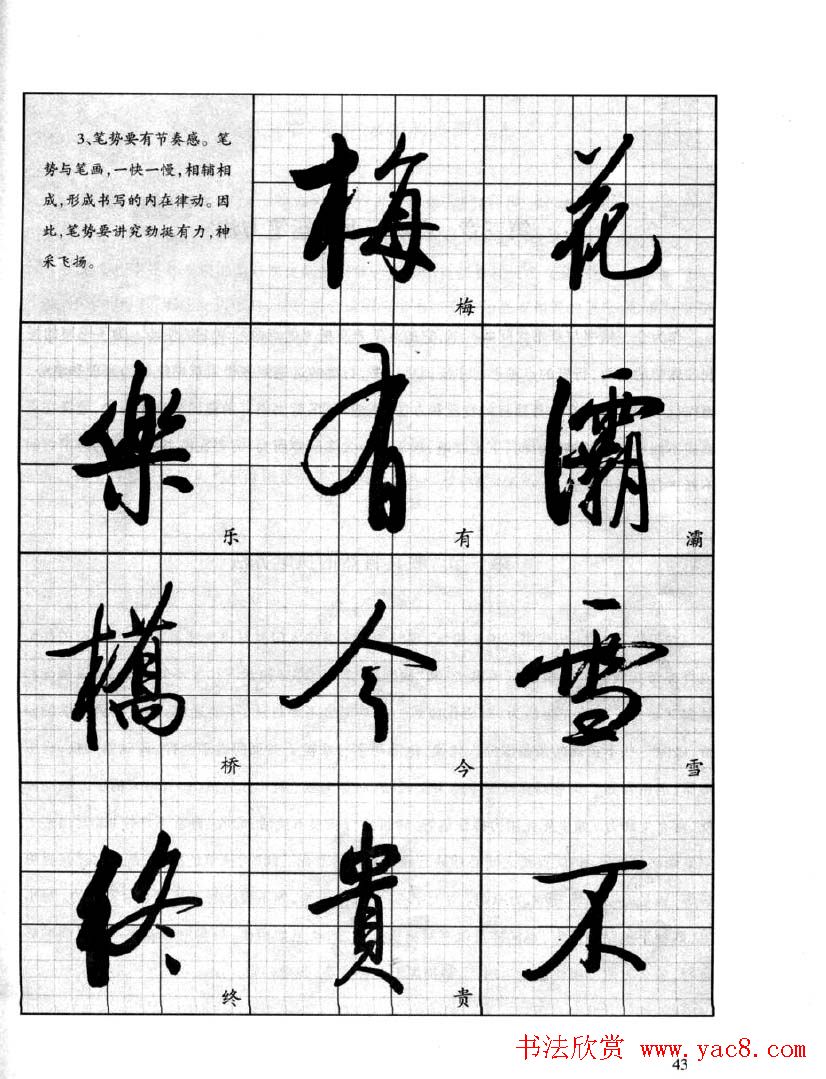 3、笔势要有节奏感。笔
势与笔画,一快一慢,相辅相
成,形成书写的内在律动。因
此,笔势要讲究劲挺有力,神
采飞扬。
梅 花
梅
樂 有 灞
乐 有 灞
橋 今 雪
桥 今 雪
終 貴 不
终 贵
书法欣赏 www.yac8.com
43